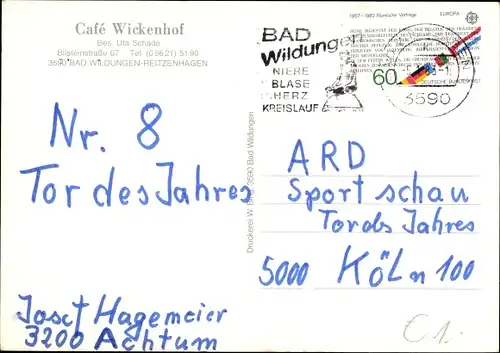 Café Wickenhof
Bes. Uta Schade
Bilsteinstraße 67 Tel. (05621) 5190
3590 BAD WILDUNGEN-REITZENHAGEN
BAD
Wildungen
NIERE
BLASE
HERZ
KREISLAUF
1957-1982 Römische Verträge EUROPA
60
DEUTSCHE BUNDESPOST
3590
Nr. 8
Tor des Jahres
Josef Hagemeier
3200 Achtum
Druckerei W. 3590 Bad Wildungen
ARD
Sportschau
Tor des Jahres
5000 KÖLn 100
€ 1.-